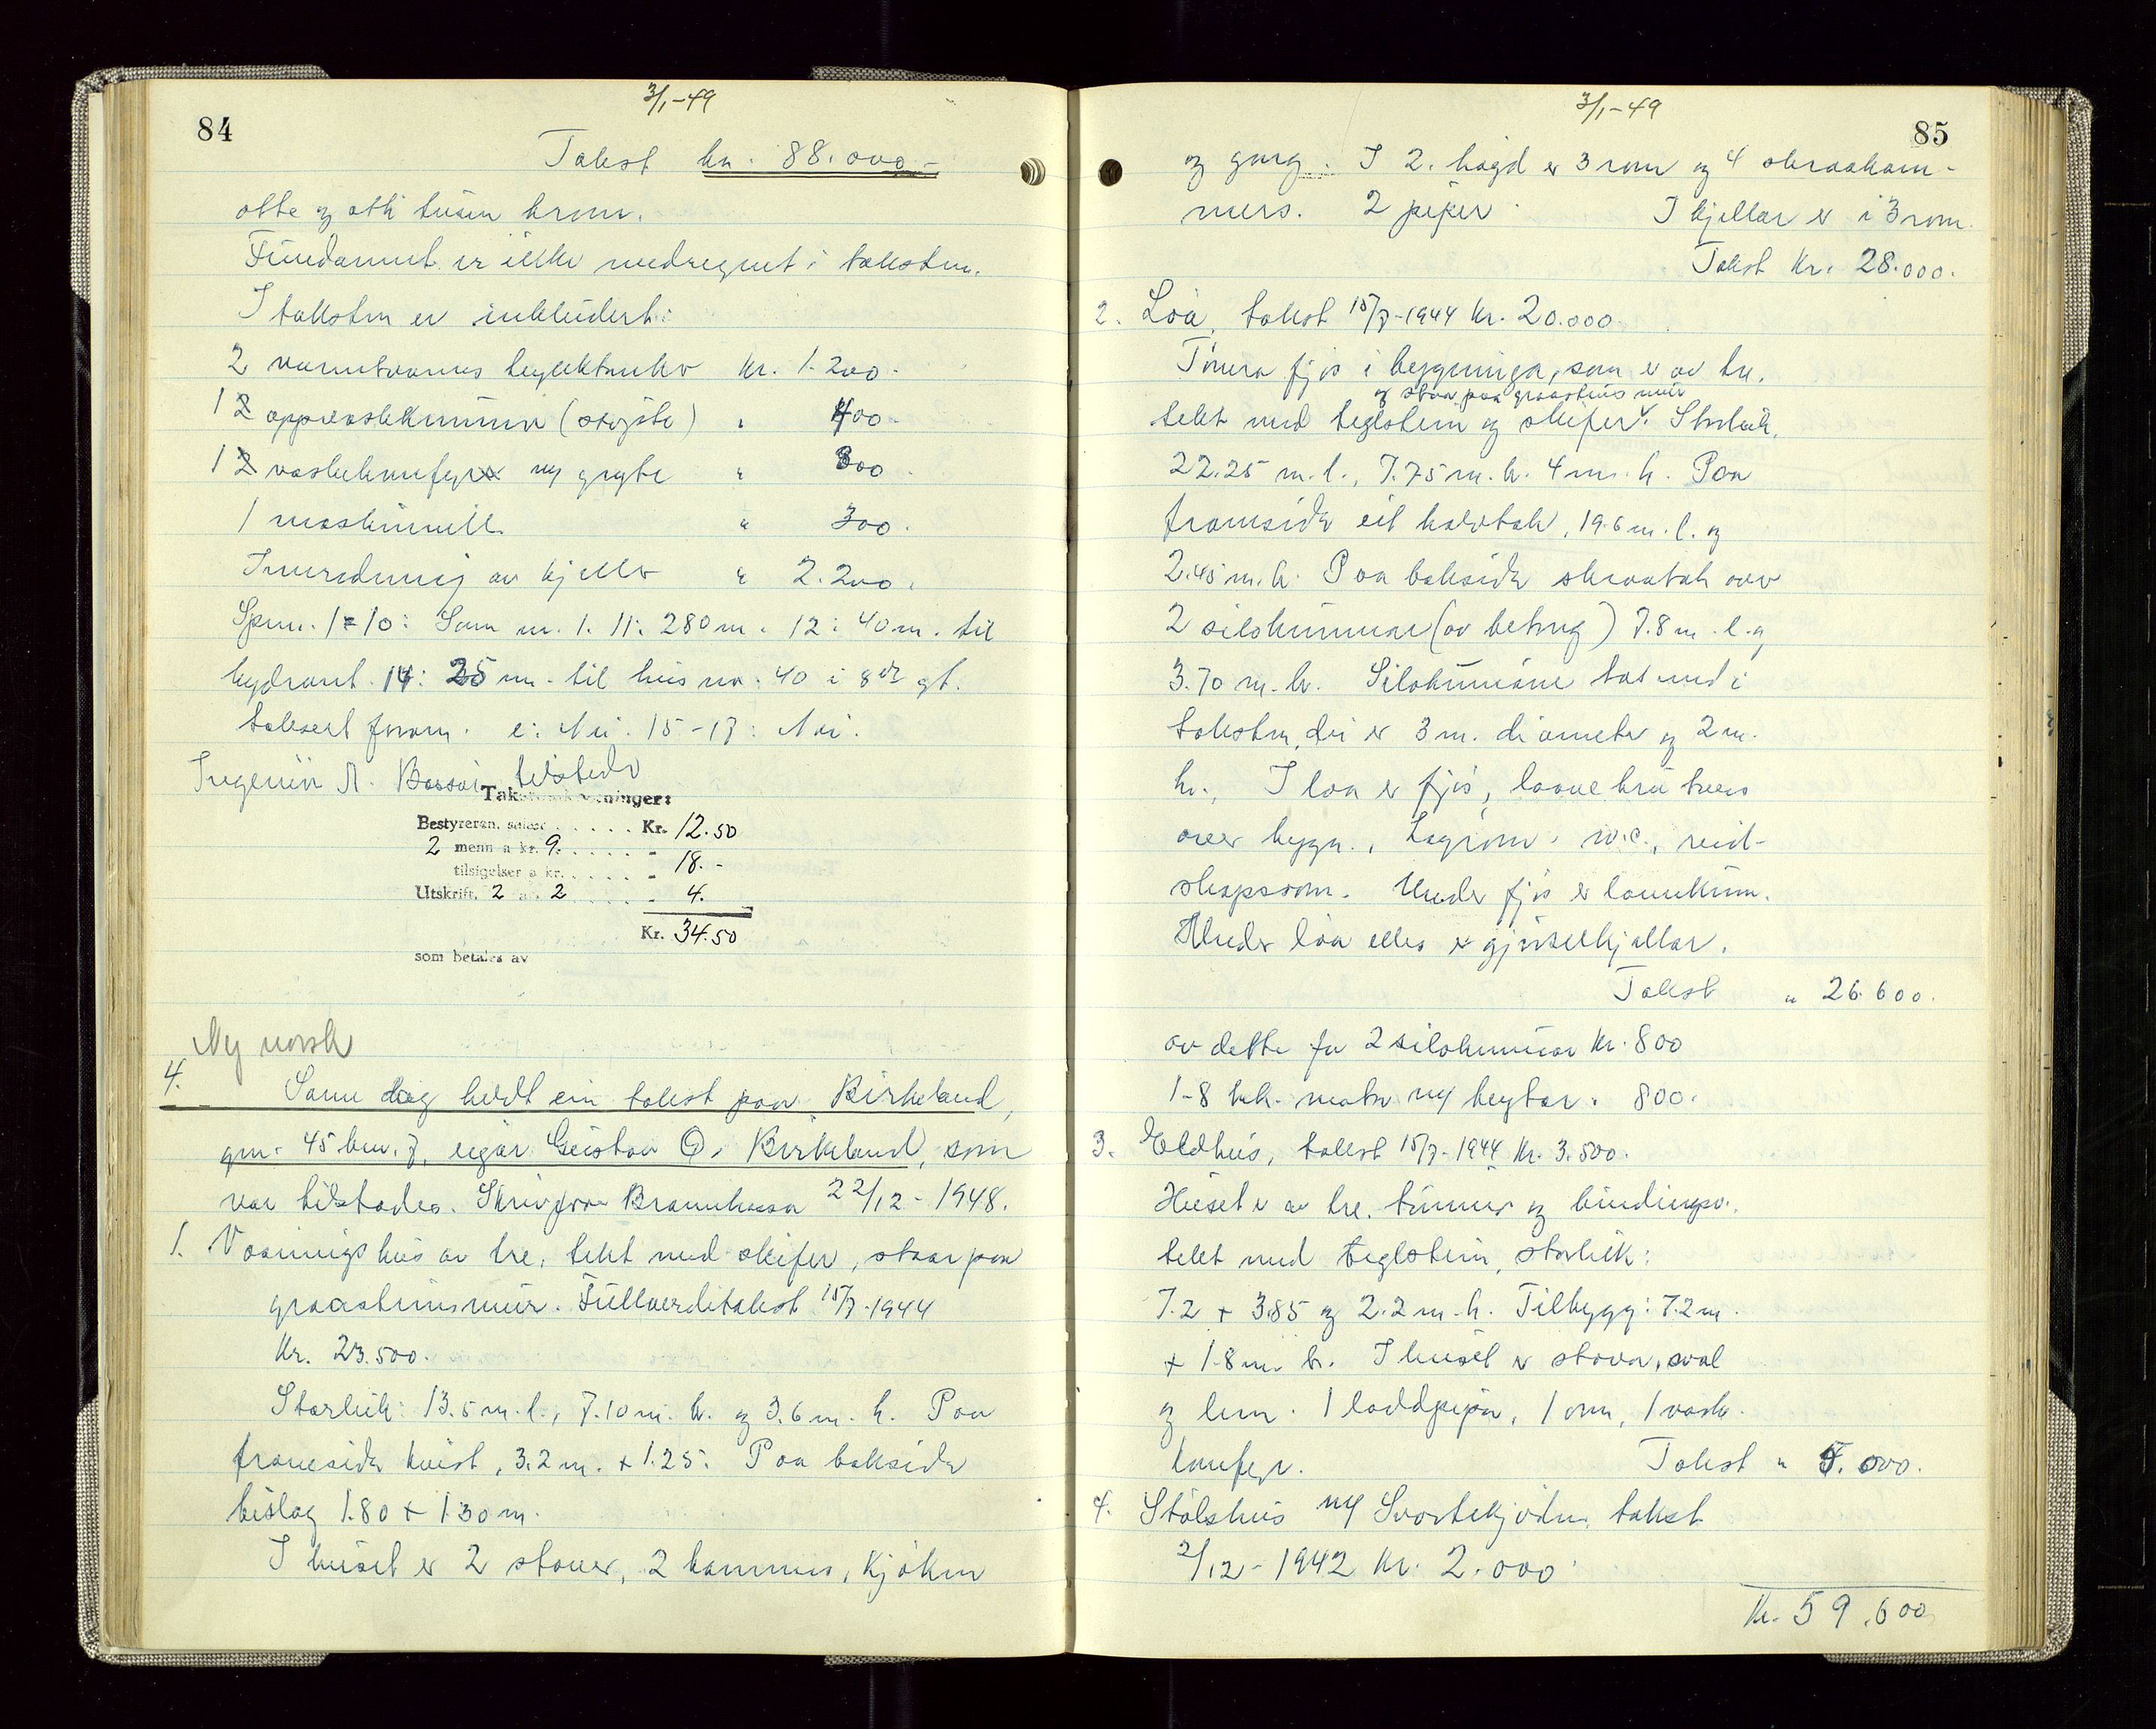 84
3/1-49
Takst kr. 88.000.-
otte og otti tusen kroner.
Fundament er ikke medregnet i taksten.
I taksten er inkludert:
2 varmtvanns høyektanker kr. 1.200.-
1 oppvaskkummer (støpte) " 400.-
1 vaskekomfyr m/ gryte " 300.
1 maskinvell " 300.
Innredning av kjeller " 2.200.
Spm. 1-10: Som nr. 1. 11: 280 m. 12: 40 m. til
hydrant. 14: 25 m. til hus nr. 40 i 8de gt.
taksert foran. e: Nei. 15-17: Nei.
Ingeniør A. tilstede
Takstomkostninger:
Bestyreren, Kr. 12.50
2 menn a kr. 9. 18.-
tilsigelser a kr.
Utskrift, 2 a 2 4.
Kr. 34.50
som betales av
Ny norsk
4. Same dag heldt ein takst paa Birkeland,
gnr. 45 bnr. 7, eigar Gustav O. Birkeland, som
var tilstades. Skriv fraa Brannkassa 22/12-1948.
1. Vaaningshus av tre, tekt med skifer, staar paa
graasteinsmur. Fullverditakst 15/7-1944
Kr. 23.500.
Storleik: 13.5 m. l., 7.10 m. br. og 3.6 m. h. Paa
framsida kvist, 3.2 m. + 1.25. Paa baksida
bislag 1.80 + 1.30 m.
I huset er 2 stover, 2 kammers, kjøken
3/1-49
85
og gang. I 2. høgd er 3 rom og 4 skraakam-
mers. 2 piper. I kjellar er i 3 rom.
Takst Kr. 28.000.
2. Løa, takst 15/7-1944 Kr. 20.000.
Tømra fjøs i bygninga, som er av tre,
og staar paa graasteins mur
tekt med teglstein og skifer. Storleik,
22.25 m. l., 7.75 m. br. 4 m. h. Paa
framsida eit halvtak, 19.6 m. l. og
2.45 m. br. Paa baksida skraatak over
2 silokummar (av betong) 7.8 m. l. og
3.70 m. br. Silokumane tat med i
taksten, dei er 3 m. diameter og 2 m.
h., I løa er fjøs, laavebru tvers
over bygn., w.c., reid-
skapsrom. Under fjøs er lannkum.
Under løa elles er gjødselkjellar.
Takst " 26.600.
av dette for 2 silokummar Kr. 800
1-8 hk. motor m/ brytar " 800.
3. Eldhus, takst 15/7-1944 Kr. 3.500.
Huset er av tre. tømmer og bindingsv.
tekt med teglstein, storleik:
7.2 + 3.85 og 2.2 m. h. Tilbygg: 7.2 m.
+ 1.8 m. br. I huset er stova, sval
og lem. 1 laddpipa, 1 omn, 1 vaske-
komfyr. Takst " 5.000.
4. Stølshus m/ Svartekjødna, takst
2/12-1942 Kr. 2.000.
Kr. 59.600